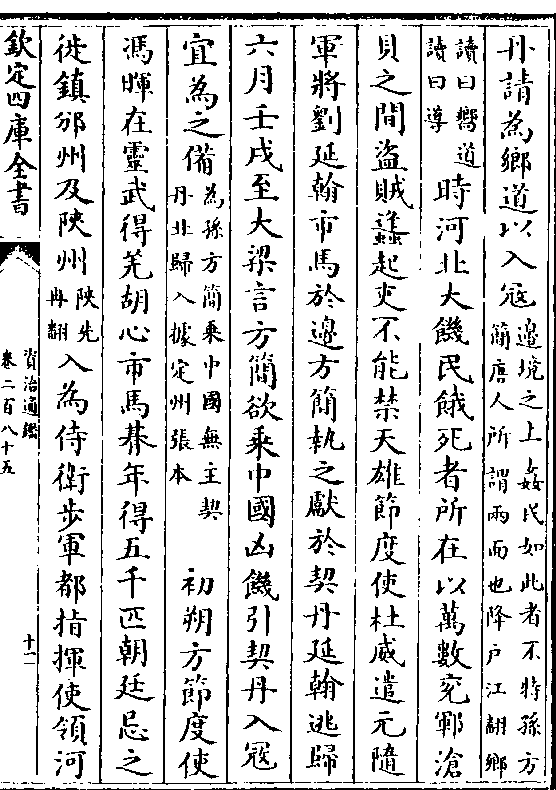 丹請為鄉道以入冦邊境之上姦民如此者不特孫方簡唐人所謂兩面也降戶江翻鄉
讀曰嚮道讀曰導時河北大饑民餓死者所在以萬數兖鄆滄
貝之間盜賊蠭起吏不能禁天雄節度使杜威遣元隨
軍將劉延翰市馬於邊方簡執之獻於契丹延翰逃歸
六月壬戌至大梁言方簡欲乘中國凶饑引契丹入冦
宜為之備為孫方簡乘中國無主契丹北歸入據定州張本初朔方節度使
馮暉在靈武得羌胡心市馬朞年得五千匹朝廷忌之
徙鎮邠州及陜州陜失冉翻入為侍衛步軍都指揮使領河
欽定四庫全書
資治通鑑
卷二百八十五
十一